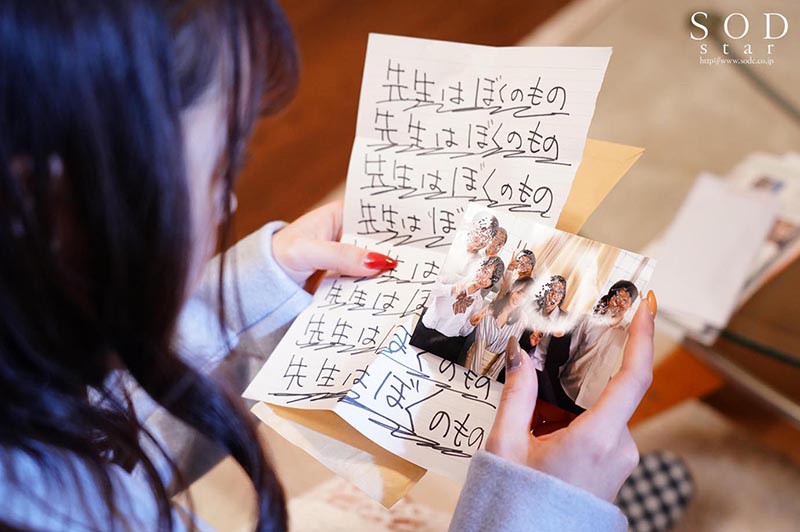 SOD
star
http://www.sodc.co.jp
先生はぼくのもの
先生はぼくのもの
先生はぼくのもの
先生はぼ
先生は
先生はぼ
先生は
先生は
ぼくのもの